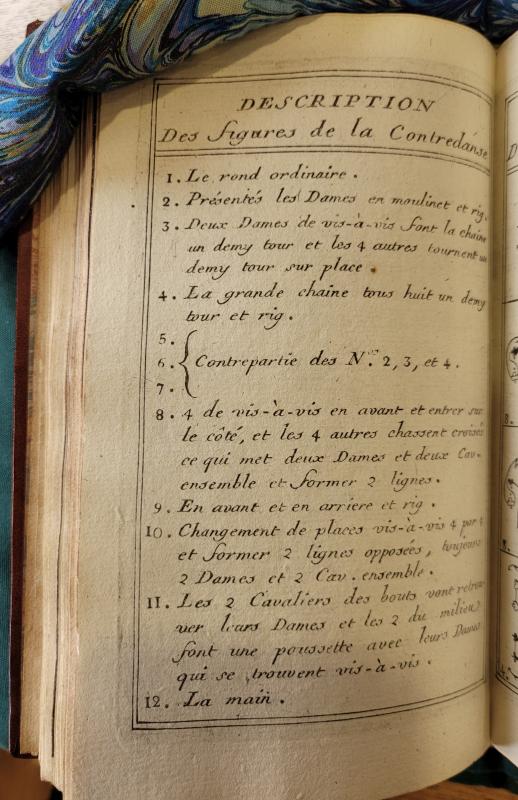 DESCRIPTION
Des figures de la Contredanse
1. Le rond ordinaire.
2. Présentés les Dames en moulinet et rig.
3. Deux Dames de vis-à-vis font la chaine
un demy tour et les 4 autres tournent un
demy tour sur place.
4. La grande chaine tous huit un demy
tour et rig.
5.
6. Contrepartie des Nos. 2, 3, et 4.
7.
8. 4 de vis-à-vis en avant et entrer sur
le côté, et les 4 autres chassent croisés
ce qui met deux Dames et deux Cav.
ensemble et former 2 lignes.
9. En avant et en arriere et rig.
10. Changement de places vis-à-vis 4 par 4
et former 2 lignes opposées, toujours
2 Dames et 2 Cav. ensemble.
11. Les 2 Cavaliers des bouts vont retrou
ver leurs Dames et les 2 du milieu
font une poussette avec leurs Dames
qui se trouvent vis-à-vis.
12. La main.